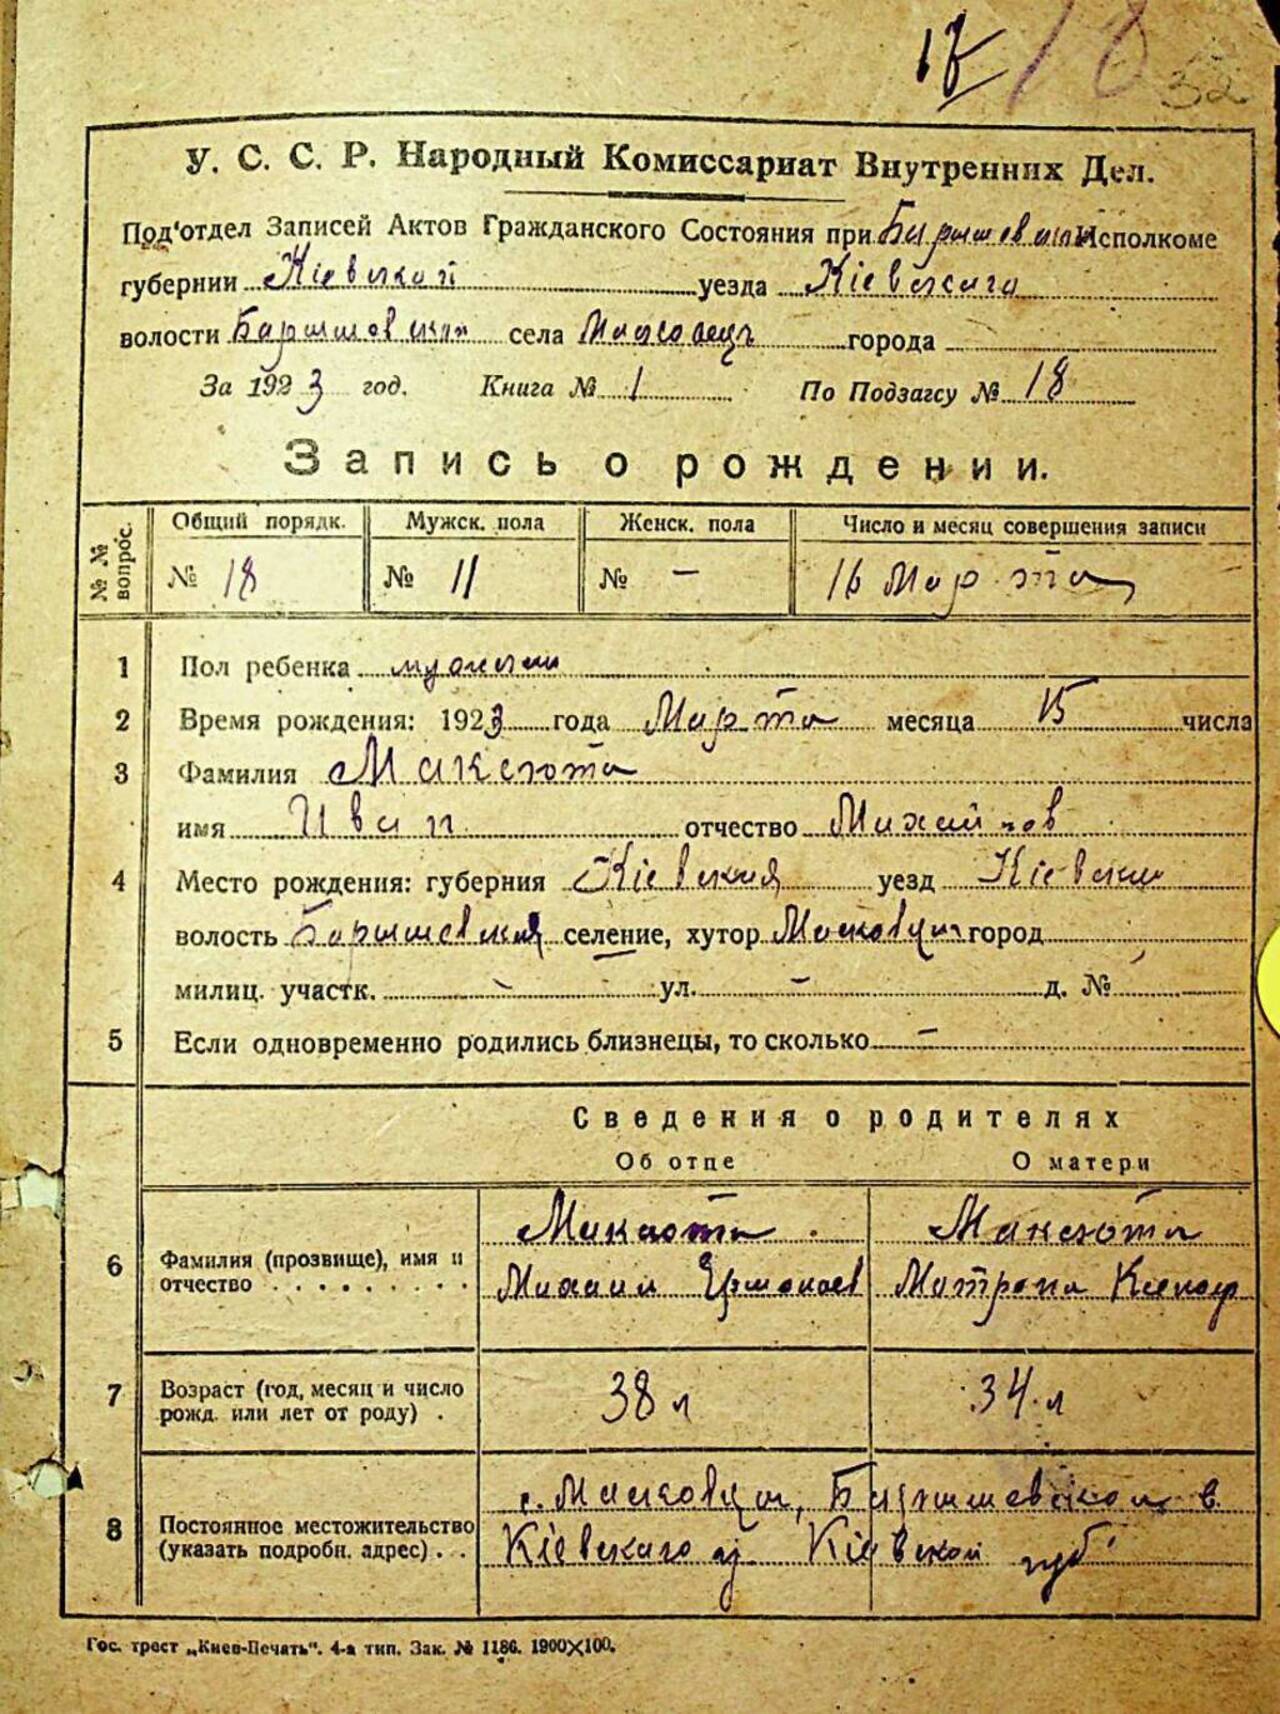 17 18
32
У. С. С. Р. Народный Комиссариат Внутренних Дел.
Под'отдел Записей Актов Гражданского Состояния при Барышевском Исполкоме
губернии Кіевской уезда Кіевскаго
волости Барышевской села города
За 1923 год. Книга № 1 По Подзагсу № 18
Запись о рождении.
№ № вопрос. Общий порядк. Мужск. пола Женск. пола Число и месяц совершения записи
№ 18 № 11 № — 16 Марта
1 Пол ребенка мужской
2 Время рождения: 1923 года Марта месяца 15 числа
3 Фамилия Максюта
имя Иван отчество Михайлов
4 Место рождения: губерния Кіевская уезд Кіевский
волость Барышевская селение, хутор Масковцы город
милиц. участк. — ул. — д. №
5 Если одновременно родились близнецы, то сколько —
Сведения о родителях
Об отце О матери
6 Фамилия (прозвище), имя и отчество . . . . . . . . .
Максюта Максюта
Михаил Матрона
7 Возраст (год, месяц и число рожд. или лет от роду) .
38 л 34 л
8 Постоянное местожительство (указать подробн. адрес) . . .
с. Масковцы, Барышевской в.
Кіевскаго у. Кіевской губ
Гос. трест „Киев-Печать". 4-я тип. Зак. № 1186. 1900×100.